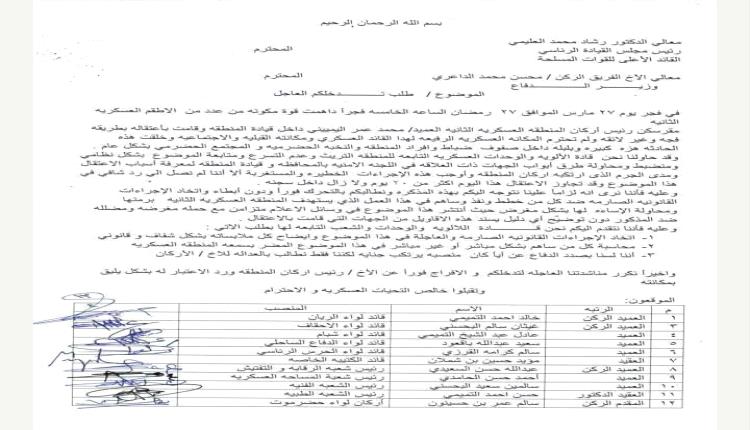 بسم الله الرحمان الرحيم
معالي الدكتور رشاد محمد العليمي
رئيس مجلس القيادة الرئاسي المحترم
القائد الأعلى للقوات المسلحة
معالي الأخ الفريق الركن / محسن محمد الداعري المحترم
وزيــر الــــــدفاع
الموضوع / طلب تـــــدخلكم العاجل
في فجر يوم ٢٧ مارس الموافق ٢٧ رمضان الساعه الخامسه فجراً داهمت قوة مكونه من عدد من الأطقم العسكريه
الثانيه
مقرسكن رئيس اركان المنطقه العسكريه الثانيه العميد/ محمد عمر اليميني داخل قيادة المنطقه وقامت بأعتقاله بطريقه
فجه وغير لائقه ولم تحترم المكانه العسكريه الرفيعه لهذا القائد العسكري ومكانته القبليه والاجتماعيه وخلقت هذه
الحادثه هزه كبيره وبلبله داخل صفوف ضباط وافراد المنطقه والنخبه الحضرميه و المجتمع الحضرمي بشكل عام .
وقد حاولنا نحن قادة الألويه والوحدات العسكريه التابعه للمنطقه التريث وعدم التسرع ومتابعة الموضوع بشكل نظامي
ومنضبط ومحاولة طرق أبواب الجهات ذات العلاقه في اللجنه الامنيه بالمحافظه و قيادة المنطقه لمعرفة أسباب الاعتقال
ومدى الجرم الذى ارتكبه اركان المنطقه واوجب هذه الإجراءات الخطيره والمستغربة ألا أننا لم نصل الى رد شافي في
هذا الموضوع وقد تجاوز الاعتقال هذا اليوم اكثر من ٢٠ يوم ولا زال داخل سجنه .
وعليه فأننا نرى انه لزاماً علينا نتوجه اليكم بهذه المذكره ونطالبكم بالتحرك فوراً ودون ابطاء واتخاذ الإجراءات
القانونيه الصارمه ضد كل من خطط ونفذ وساهم في هذا العمل الذي يستهدف المنطقه العسكريه الثانيه برمتها
ومحاولة الإساءه لها بشكل مغرض حيث أنتشر هذا الموضوع في وسائل الاعلام متزامن مع حمله مغرضه ومضلله
ضد المذكور دون توضيح أي دليل يسند هذه الاقاويل من الجهات التي قامت بالاعتقال .
وعليه فأننا نتقدم اليكم نحن قــــــادة الألويه والوحدات والشعب التابعه لها بطلب الاتي :
١ - اتخاذ الإجراءات القانونيه الصارمه والعاجلة في هذا الموضوع وايضاح كل ملابساته بشكل شفاف و قانوني
٢ - محاسبة كل من ساهم بشكل مباشر أو غير مباشر في هذا الموضوع المضر بسمعه المنطقه العسكريه
٣ - أننا لسنا بصدد الدفاع عن أياً كان منصبه يرتكب جنايه لكننا فقط نطالب بالعداله للأخ / الأركان
واخيراً نكرر مناشدتنا العاجلة لتدخلكم و الافراج فوراً عن الأخ / رئيس اركان المنطقه ورد الاعتبار له بشكل يليق
بمكانته
وتقبلوا خالص التحيات العسكريه و الاحترام
الموقعون:
م الرتبه الأسم المنصب
١ العميد الركن خالد احمد التميمي قائد لواء الريان
٣ العميد الركن غيثان سالم البحسني قائد لواء الاحقاف
٤ العميد عادل عبد الشيخ التميمي قائد لواء شبام
٥ العميد سعيد عبدالله باقعود قائد لواء الدفاع الساحلي
٦ العميد سالم كرامه القرزي قائد لواء الحرس الرئاسي
٧ العقيد مؤيد حسين بن شملان قائد الكتيبه الخاصه
٨ العميد الركن عبدالله حسن السعيدي رئيس شعبة الرقابه و التفتيش
٩ العميد أحمد حسن الحامدي رئيس شعبة المساحه العسكريه
١٠ العميد سالمين سعيد البحسني رئيس الشعبه الفنيه
١١ العقيد الدكتور حسن احمد التميمي رئيس الشعبه الطبيه
١٢ المقدم الركن سالم عمر بن حسينون أركان لواء حضرموت